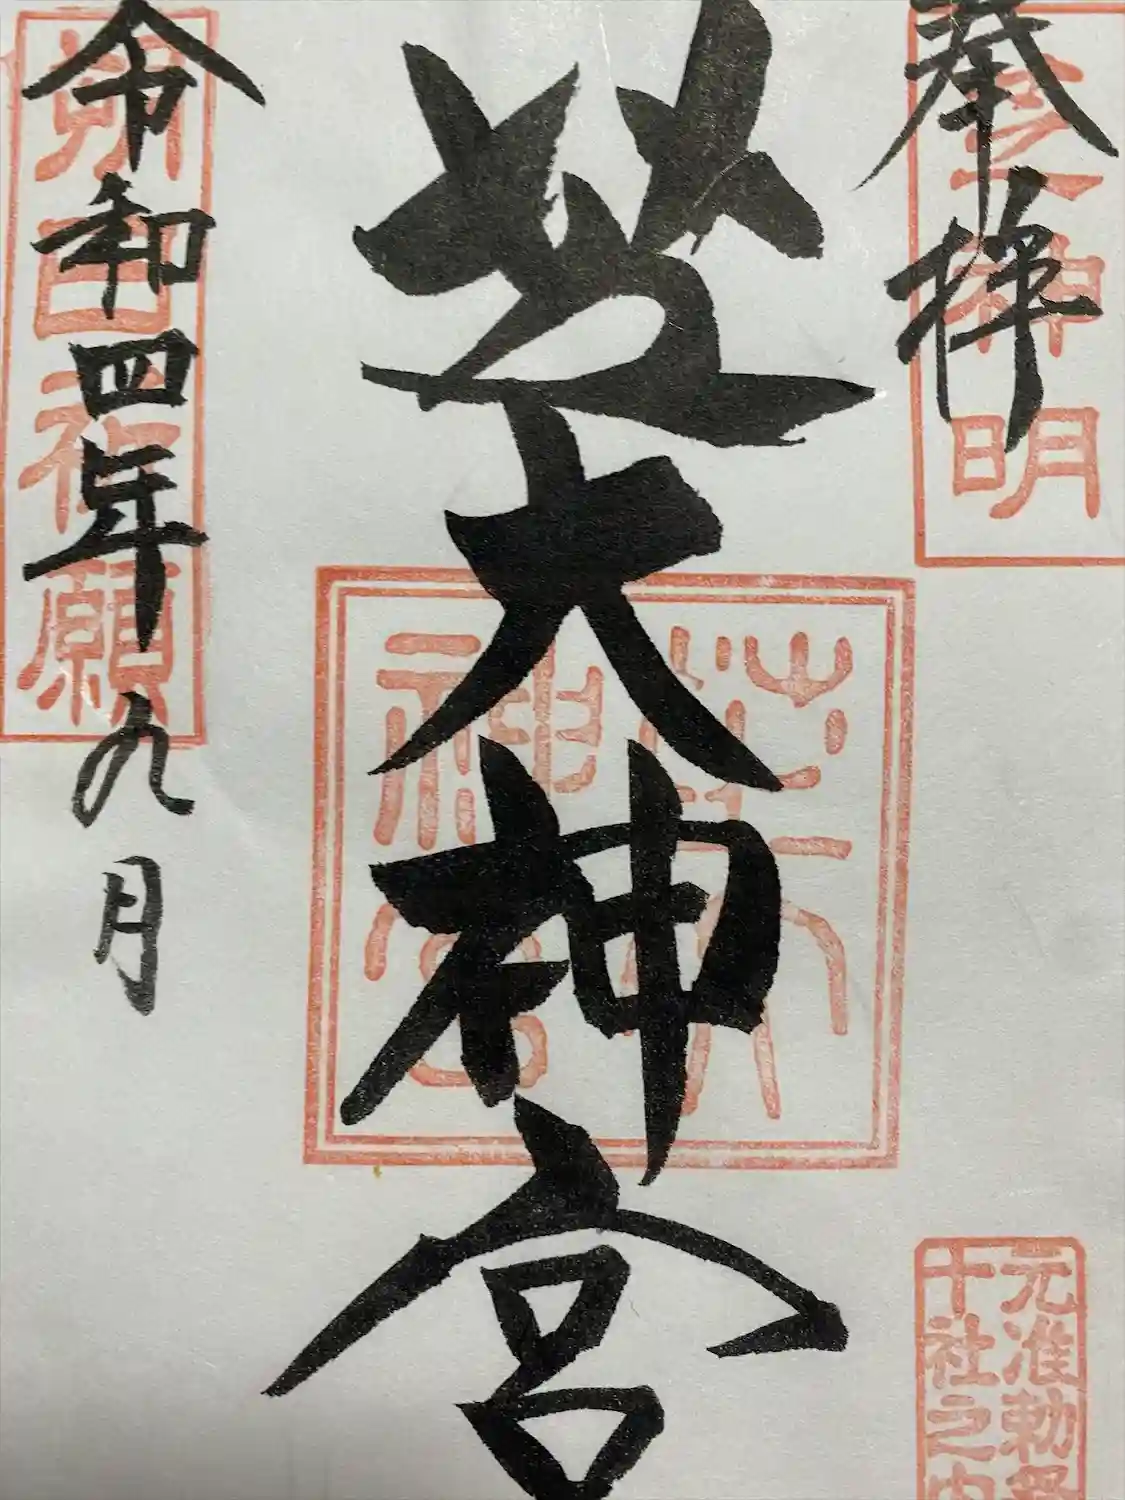 奉拝
芝神明
元准勅祭
十社之内
芝大神宮
芝大
神宮
令和四年九月
朔日祈願